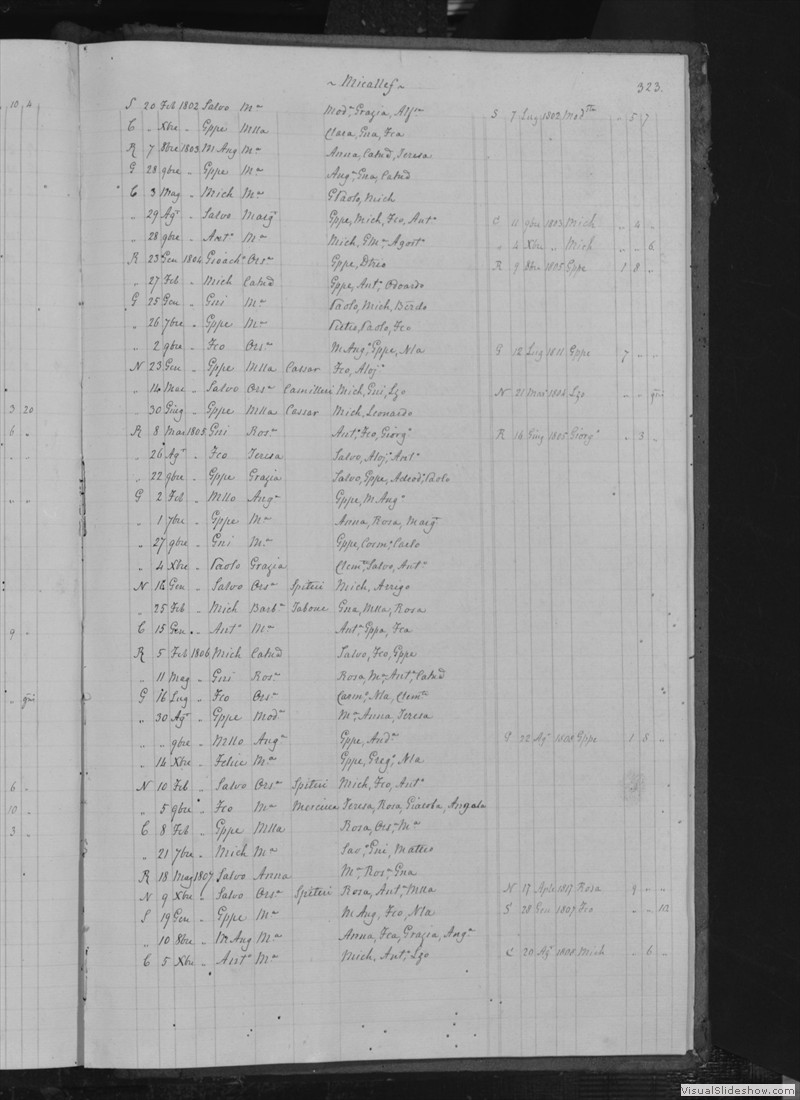 ~ Micallef ~ 323.
10 4
S 20 Feb 1802 Salvo Mª Modª, Grazia, Alfsa S 7 Lug 1802 Modtta „ 5 7
C „ Xbre „ Gppe Mlla Clara, Gna, Fca
R 7 8bre 1803 M Ang Mª Anna, Catnd, Teresa
G 28 9bre „ Gppe Mª Angª, Gna, Catnd
C 3 Mag „ Mich Mª GPaolo, Mich
„ 29 Agº „ Salvo Margª Gppe, Mich, Fco, Antº C 11 9bre 1803 Mich „ 4 „
„ 28 9bre „ Antº Mª Mich, Agostº „ 4 Xbre „ Mich „ „ 6
R 23 Gen 1804 Gioachº Orsª Gppe, R 9 8bre 1805 Gppe 1 8 „
„ 27 Feb „ Mich Catnd Gppe, Antº, Odoardo
G 25 Gen „ Gni Mª Paolo, Mich, Berdo
„ 26 7bre „ Gppe Mª Pietro, Paolo, Fco
„ 2 9bre „ Fco Orsª M Angº, Gppe, Nla G 12 Lug 1811 Gppe 7 „ „
N 23 Gen „ Gppe Mlla Cassar Fco, Alojº
„ 14 Mar „ Salvo Orsª Camilleri Mich, Gni, Lzo N 21 Mar 1804 Lzo „ „ gni
3 20 „ 30 Giug „ Gppe Mlla Cassar Mich, Leonardo
6 „ R 8 Mar 1805 Gni Rosª Antº, Fco, Giorgº R 14 Giug 1805 Giorgº „ 3 „
„ 26 Agº „ Fco Teresa Salvo, Alojº, Antº
„ 22 9bre „ Gppe Grazia Salvo, Gppe, Paolo
„ „ G 2 Feb „ Mllo Angª Gppe, M Angº
„ 1 7bre „ Gppe Mª Anna, Rosa, Margª
„ 27 9bre „ Gni Mª Gppe, Cosmº, Carlo
„ 4 Xbre „ Paolo Grazia Clemte, Salvo, Antº
N 14 Gen „ Salvo Orsª Spiteri Mich, Arrigo
„ 25 Feb „ Mich Barbª Tabone Gna, Mlla, Rosa
9 „ C 15 Gen „ Antº Mª Antª, Gppa, Fca
R 5 Feb 1806 Mich Catnd Salvo, Fco, Gppe
„ 11 Mag „ Gni Rosª Rosa, Mª, Antª, Catnd
„ gni G 16 Lug „ Fco Orsª Carmº, Nla, Clemte
„ 30 Agº „ Gppe Modª Mª, Anna, Teresa
„ „ 9bre „ Mllo Angª Gppe, Andª G 22 Agº 1808 Gppe 1 8 „
„ 14 Xbre „ Felice Mª Gppe, Gregº, Nla
6 „ N 10 Feb „ Salvo Orsª Spiteri Mich, Fco, Antº
10 „ „ 5 9bre „ Fco Mª Mercieca Teresa, Rosa, Giacola, Angala
3 „ C 8 Feb „ Gppe Mlla Rosa, Orsª, Mª
„ 21 7bre „ Mich Mª Savº, Gni, Matteo
R 18 Mag 1807 Salvo Anna Mª, Rosª, Gna
N 9 Xbre „ Salvo Orsª Spiteri Rosa, Antª, Mlla N 17 Aple 1817 Rosa 9 „ „
S 19 Gen „ Gppe Mª M Ang, Fco, Nla S 28 Gen 1807 Fco „ „ 12
„ 10 8bre „ M Ang Mª Anna, Fca, Grazia, Angª
C 5 Xbre „ Antº Mª Mich, Antº, Lzo C 20 Agº 1808 Mich „ 6 „
VisualSlideshow.com